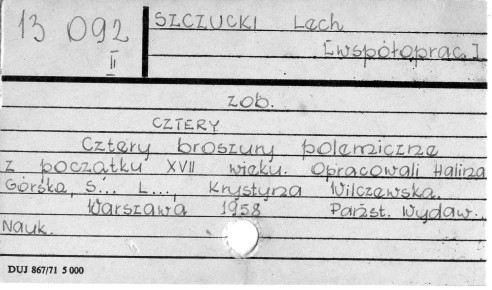 13 092
II
SZCZUCKI Lech
[współoprac.]
zob.
CZTERY
Cztery broszury polemiczne
z początku XVII wieku. Opracowali Halina
Górska, S... L..., Krystyna Wilczewska.
Warszawa 1958 Państ. Wydaw.
Nauk.
DUJ 867/71 5 000